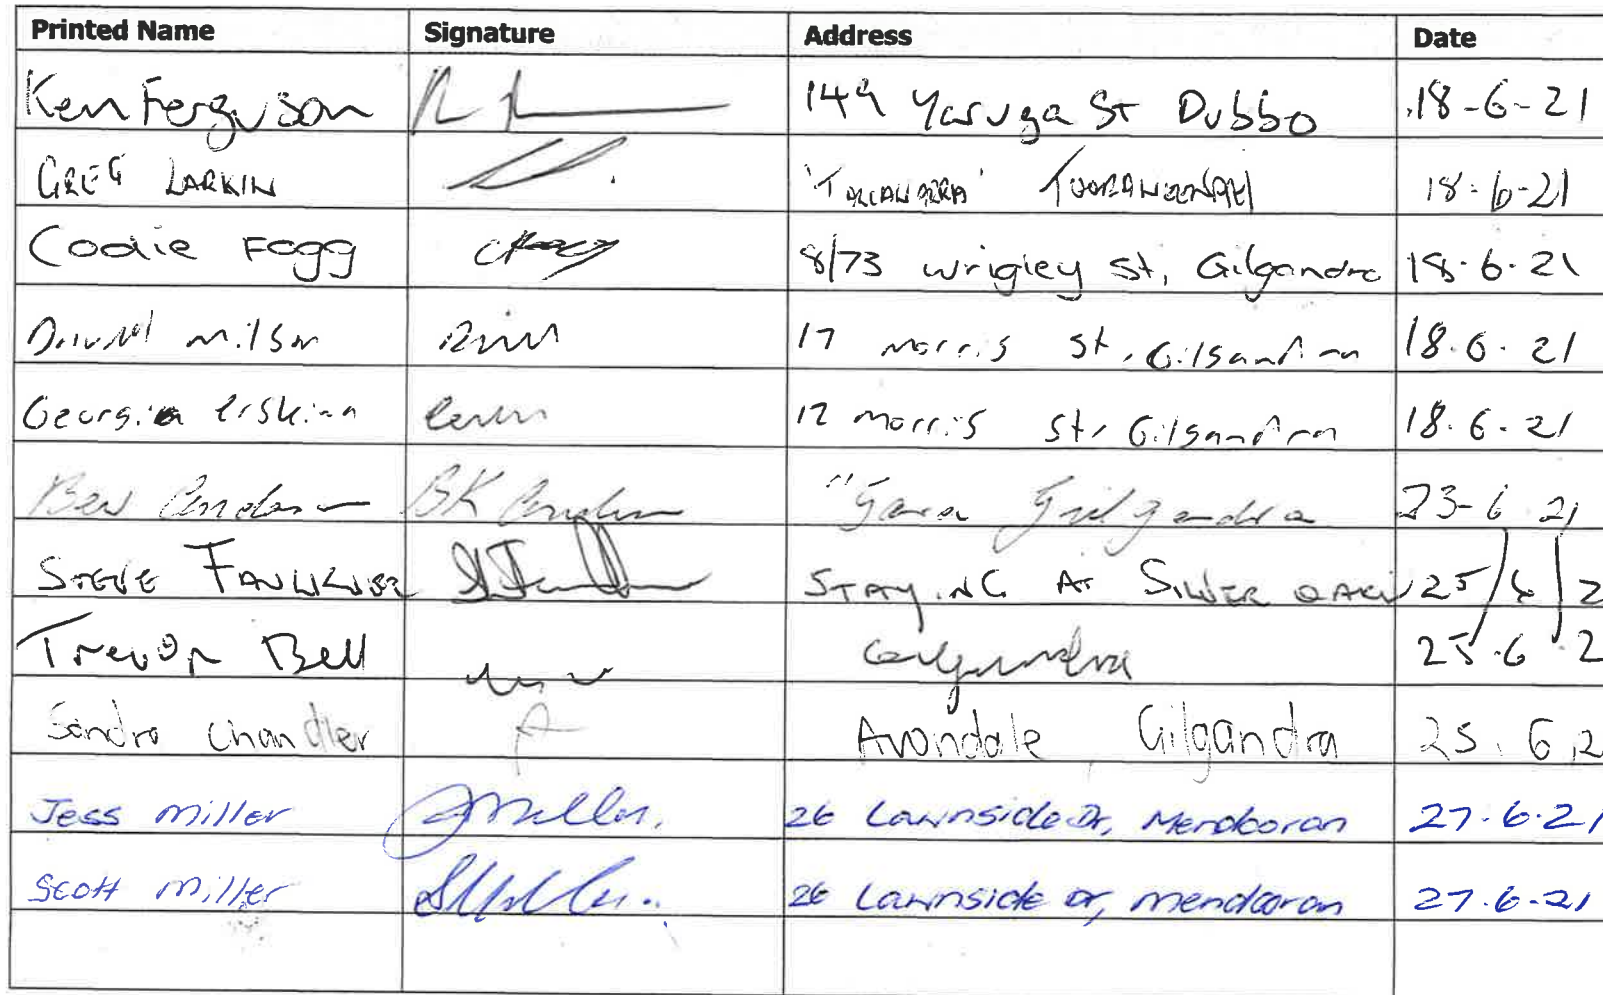 Printed Name Signature Address Date
Ken Ferguson 149 Yaruga St Dubbo 18-6-21
GREG LARKIN TOORAWEENAH 18-6-21
Codie Fogg 8/73 wrigley st, Gilgandra 18.6.21
David milson 17 morris st, Gilgandra 18.6.21
Georgia erskine 17 morris st, Gilgandra 18.6.21
Bev BK Gilgandra 23-6 21
STEVE FAULKNER STAYING AT SILVER OAKS 25/6/2
Trevor Bell Gilgandra 25.6.2
Sandra Chandler Avondale Gilgandra 25.6.2
Jess Miller JMiller. 26 Lawnside Dr, Mendooran 27.6.21
Scott Miller SMiller. 26 Lawnside Dr, Mendooran 27.6.21